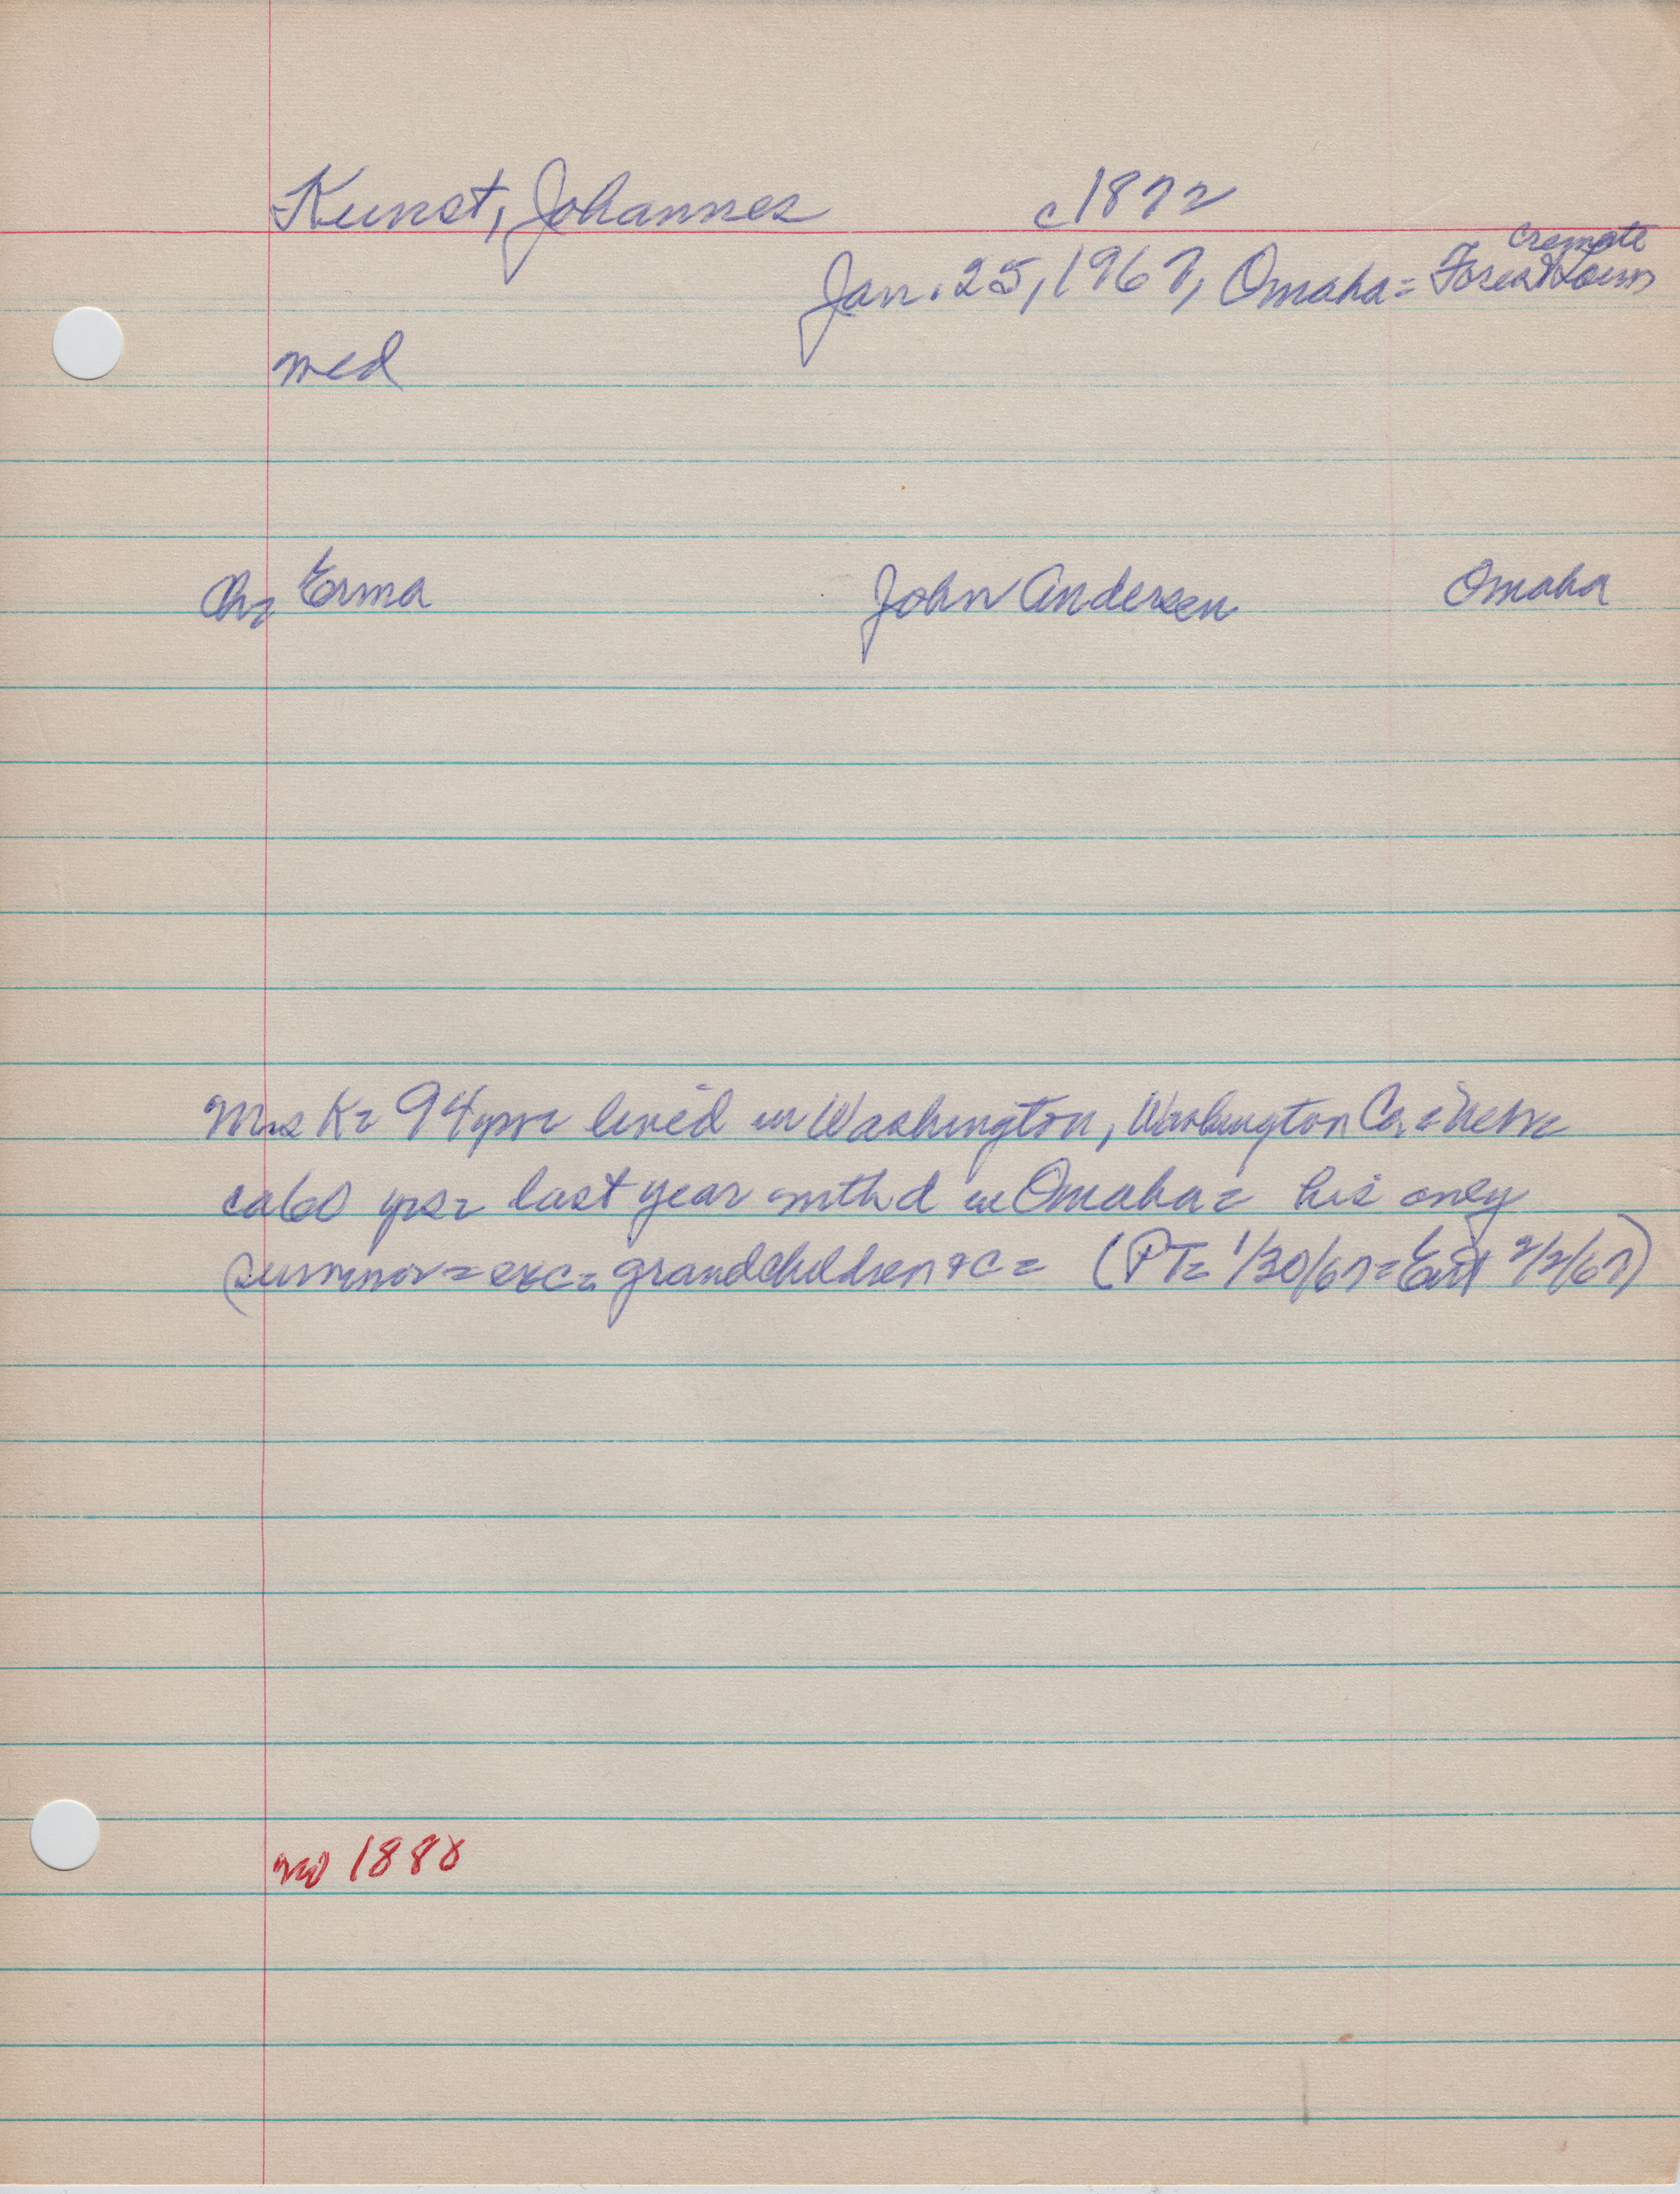 Kunst, Johannes c1872
cremate
Jan. 25, 1967, Omaha = Forest Lawn
med
Ch= Erma John Andersen Omaha
Mrs K= 94yrs= lived in Washington, Washington Co. = Nebr=
ca60 yrs= last year with d in Omaha= his only
survivor= exc= grandchildren &c= (PT= 1/30/67= Ent 2/2/67)
no 1888